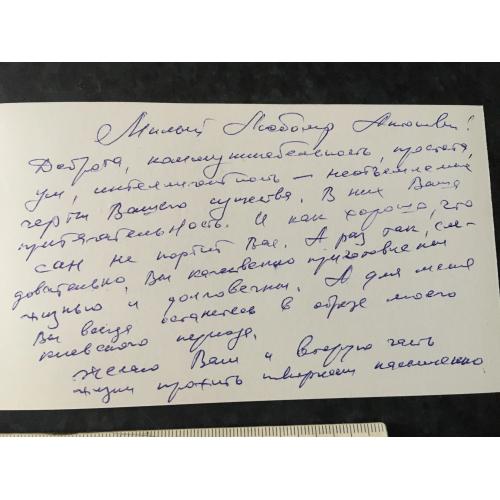 Милый Любомир Антонович!
Доброта, коммуникабельность, простота,
ум, интеллигентность – неотъемлемые
черты Вашего существа. В них Ваша
притягательность. И как хорошо, что
сан не портит Вас. А раз так, сле-
довательно, Вы качественно приготовлены
жизнью и долговечны. А для меня
Вы всегда останетесь в образе моего
киевского периода.
Желаю Вам и вторую часть
жизни прожить творчески насыщенно